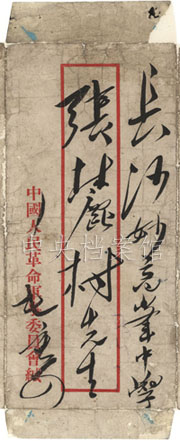 長沙妙高峯中學
張麓村先生
中國人民革命軍事委員會緘
毛
中央档案馆